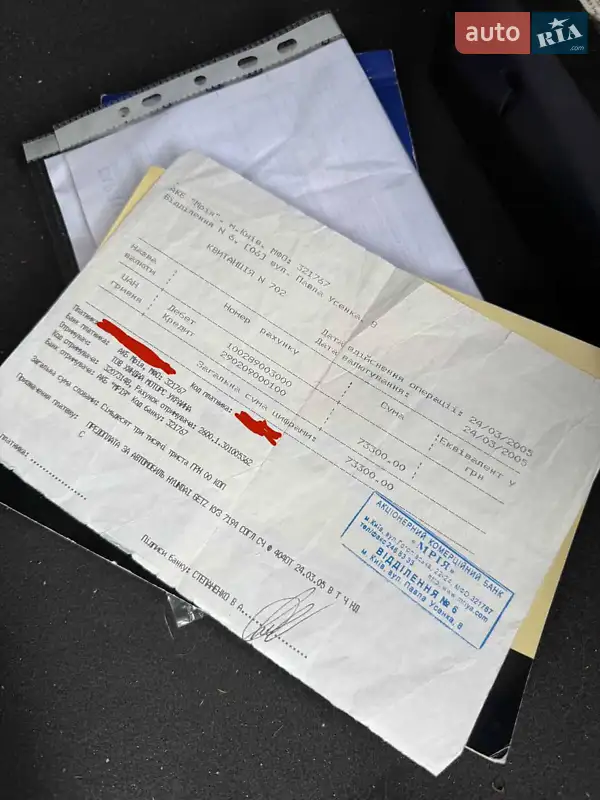 auto RIA .com
АКБ "Мрія". м.Київ, МФО: 321767
Відділення N 6, [06] вул. Павла Усенка, 8
КВИТАНЦІЯ N 702
Дата здійснення операції: 24/03/2005
Дата валютування: 24/03/2005
Назва валюти
Дебет Кредит
Номер рахунку
Сума
Еквівалент у грн
UAH гривня
100289003000
290209000100
73300.00
Загальна сума цифрами: 73300.00
Платник:
Код платника:
Банк платника: АКБ Мрія, МФО: 321767
Отримувач: ТОВ ХЮНДАЙ МОТОРС УКРАЇНА
Код отримувача: 32073148, Рахунок отримувача: 2600.1.301005362
Банк отримувача: АКБ "МРІЯ" Код Банку: 321767
Загальна сума словами: Сімдесят три тисячі триста ГРН 00 КОП
Призначення платежу:
ПРЕДОПЛАТА ЗА АВТОМОБІЛЬ HYUNDAI GETZ КУЗ 7194 СОГЛ СЧ Ф 4640Т 24.03.05 В Т Ч НД
С
платника:
Підписи Банку: СТЕПАНЕНКО В А
АКЦІОНЕРНИЙ КОМЕРЦІЙНИЙ БАНК
"МРІЯ"
ВІДДІЛЕННЯ № 6
м. Київ, вул. Павла Усенка, 8